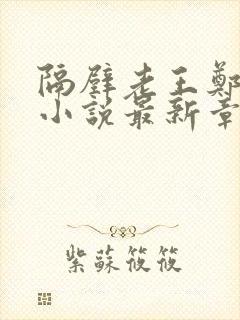 隔壁老王鄭
小說最新章
紫蘇筱筱